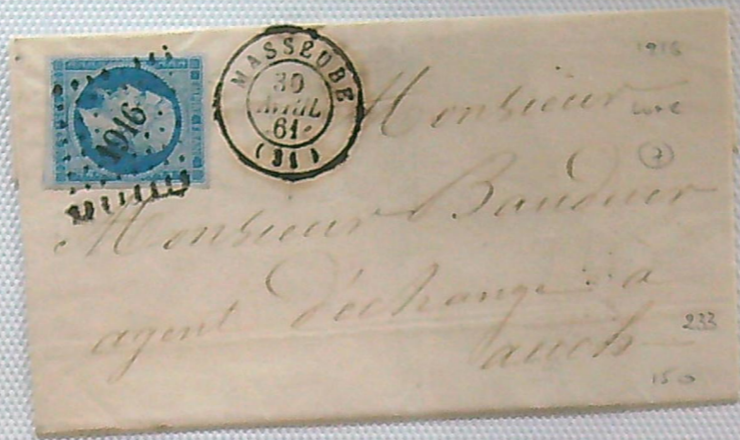 1916
MASSEUBE
30
AVRIL
61
(31)
1916
Monsieur
7
Monsieur
agent d'échange a
auch
233
150